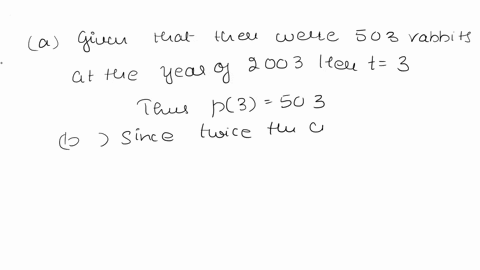 (a) Given that then were 503 rabbits
at the year of 2003 Hen t= 3
Thus p(3) = 503
(b ) Since twice the c